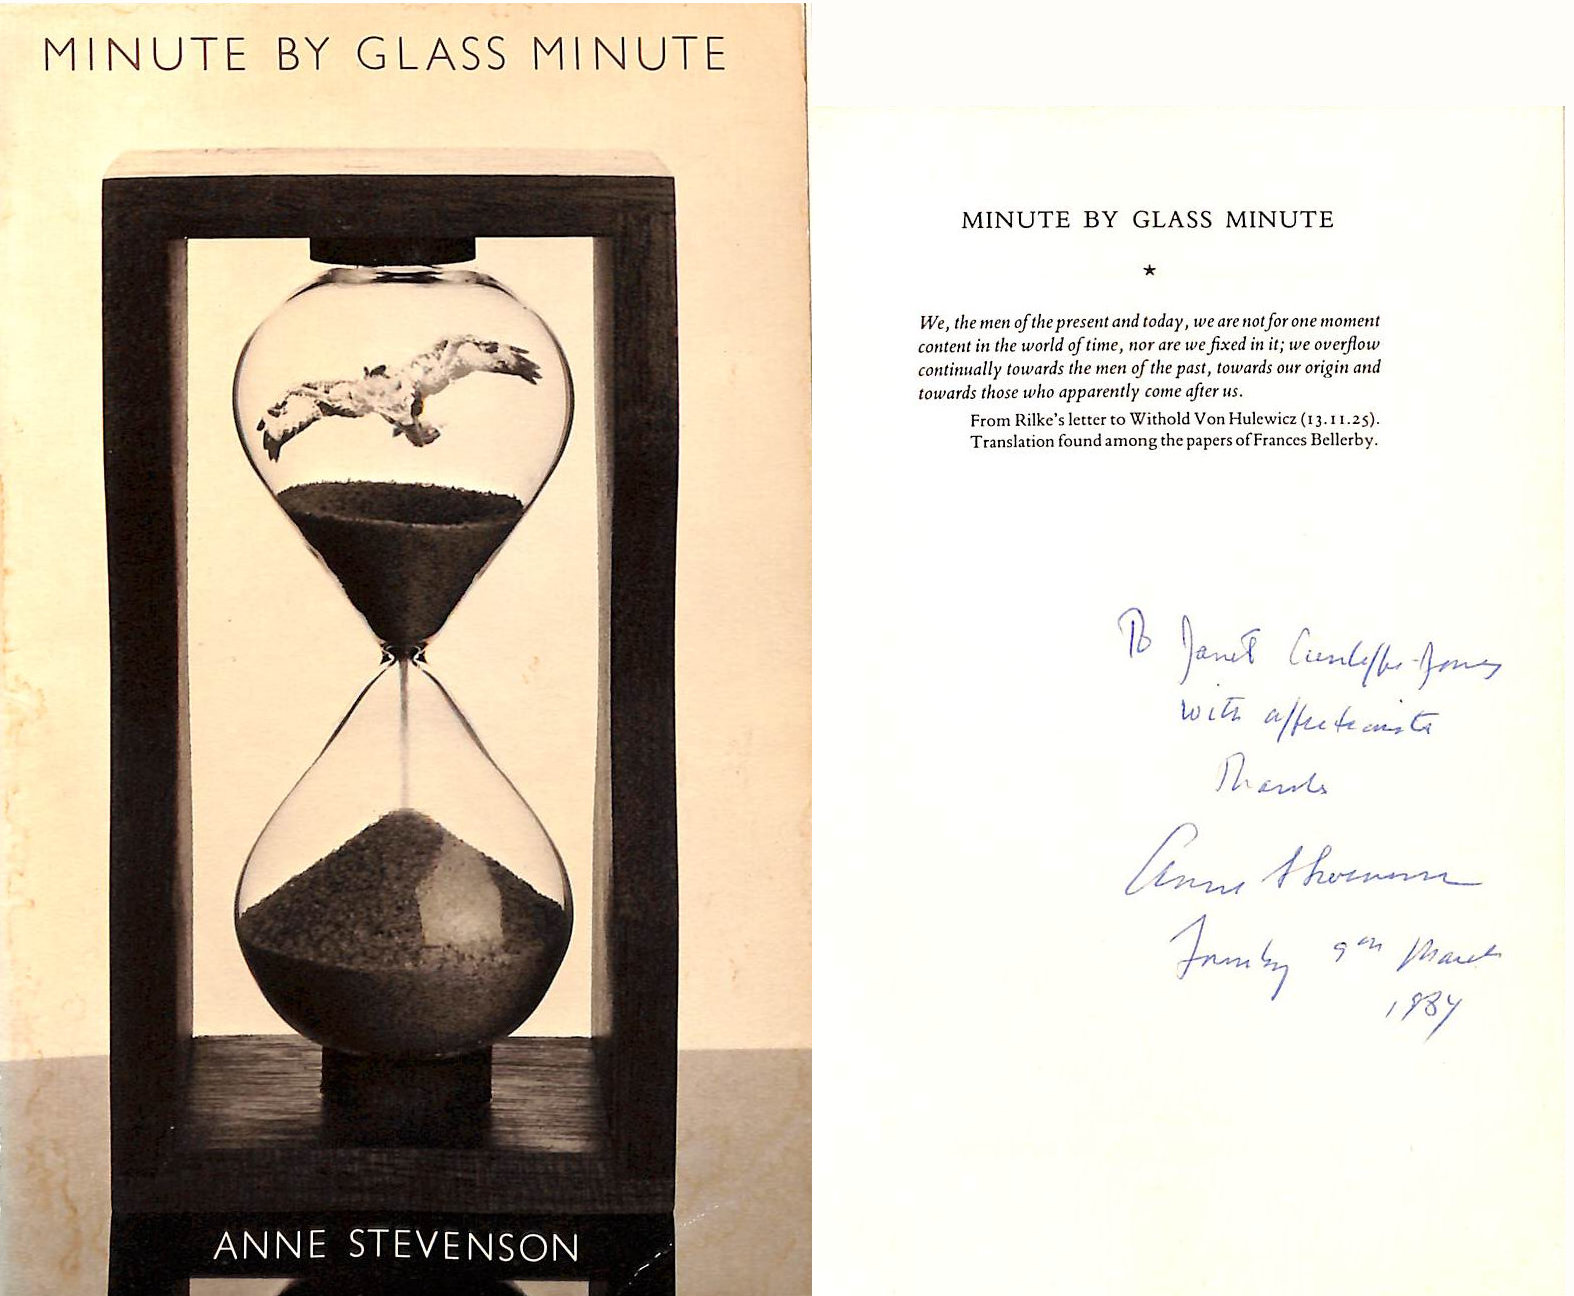 MINUTE BY GLASS MINUTE
ANNE STEVENSON
MINUTE BY GLASS MINUTE
★
We, the men of the present and today, we are not for one moment
content in the world of time, nor are we fixed in it; we overflow
continually towards the men of the past, towards our origin and
towards those who apparently come after us.
From Rilke's letter to Withold Von Hulewicz (13.11.25).
Translation found among the papers of Frances Bellerby.
To Janet Cunliffe-Jones
with affectionate
Thanks
Anne Stevenson
Formby 9th March
1984